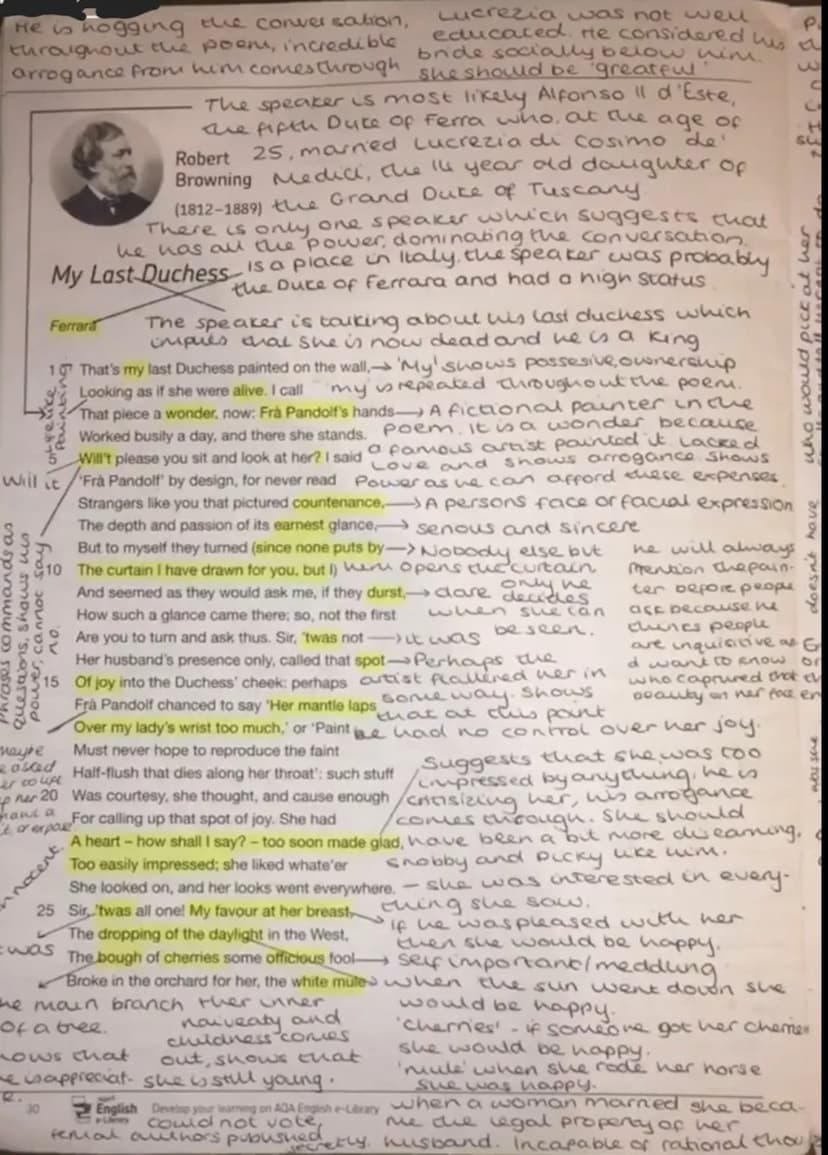 He is hogging the conversation,
throughout the poem, incredible
arrogance from him comes through
Lucrezia was not well
educated. He considered his
bride socially below him.
she should be 'greatful'
The speaker is most likely Alfonso II d'Este,
the fifth Duke of Ferra who, at the age of
25, married Lucrezia di Cosimo de'
Medici, the 14 year old daughter of
the Grand Duke of Tuscany
Robert
Browning
(1812–1889)
There is only one speaker which suggests that
he has all the power, dominating the conversation.
My Last Duchess
is a place in Italy. the speaker was probably
the Duke of Ferrara and had a high status
Ferrara
The speaker is talking about his last duchess which
impuls that she is now dead and he is a King
1 That's my last Duchess painted on the wall,
'My' shows possesive, ownership
Looking as if she were alive. I call
my is repeated throughout the poem.
That piece a wonder, now: Frà Pandolf's hands
A fictional painter in the
poem. It is a wonder because
Worked busily a day, and there she stands.
a famous artist painted it. Lacked
5 Will't please you sit and look at her? I said
Love and shows arrogance shows
Will it
'Frà Pandolf' by design, for never read
Power as he can afford these expenses
Strangers like you that pictured countenance,
A persons face or facial expression
The depth and passion of its earnest glance,
serious and sincere
But to myself they turned (since none puts by
Nobody else but
10 The curtain I have drawn for you, but I)
him opens the curtain
And seemed as they would ask me, if they durst,
dare
only he
decides
How such a glance came there; so, not the first
when she can
be seen.
Are you to turn and ask thus. Sir, 'twas not
it was
Her husband's presence only, called that spot
Perhaps the
15 Of joy into the Duchess' cheek: perhaps
artist flattered her in
Frà Pandolf chanced to say 'Her mantle laps
some way. shows
that at this point
Over my lady's wrist too much,' or 'Paint
he had no control over her joy.
he will always
mention the pain-
ter before people
ask because he
thinks people
are inquisitive
d want to know
who captured that
beauty on her face
Phrases commands as
questions, shows his
power, cannot say
no.
Must never hope to reproduce the faint
Half-flush that dies along her throat': such stuff
20 Was courtesy, she thought, and cause enough
For calling up that spot of joy. She had
A heart – how shall I say? – too soon made glad,
Too easily impressed; she liked whate'er
She looked on, and her looks went everywhere.
Suggests that she was too
impressed by anything. he is
critisizing her, his arrogance
comes through. She should
have been a bit more discerning,
snobby and picky like him.
she was interested in every-
thing she saw.
innocent.
25 Sir, 'twas all one! My favour at her breast,
The dropping of the daylight in the West,
The bough of cherries some officious fool
Broke in the orchard for her, the white mule
if he was pleased with her
then she would be happy.
self important/meddling
when the sun went down she
would be happy.
'cherries' - if someone got her cherries
she would be happy.
'mule' when she rode her horse
she was happy.
main branch
of a tree.
Her inner
naiveaty and
childness comes
out, shows that
she is still young.
30
English
e-Library
Develop your learning on AQA English e-Library
could not vote,
authors published
secretly.
when a woman married she beca-
me the legal property of her
husband. Incapable of rational
who would pick at her
doesn't have